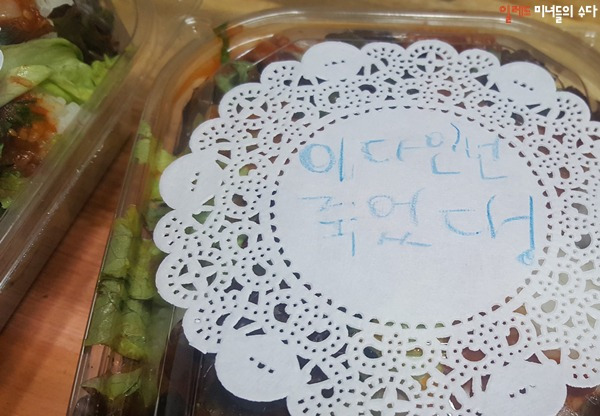 일레드 미녀들의 수다
이다인년
죽었다.